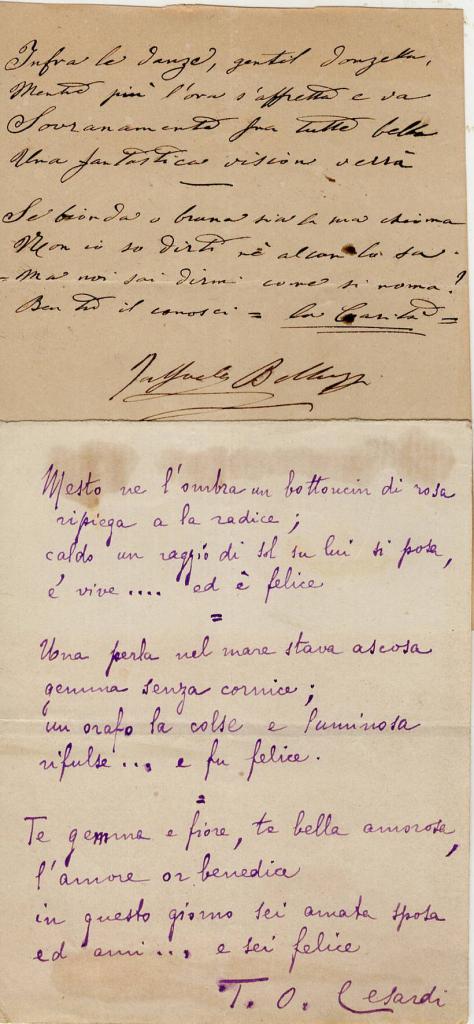 Infra le danze, gentil donzella,
Mentre più l'ora s'affretta e va
Sovranamente fra tutte bella
Una fantastica vision verrà
Se bionda o bruna sia la sua chioma
Non io so dirti nè alcun lo sa.
= Ma noi sai dirmi come si noma?
Ben tu il conosci = la Carità =
Raffaele Belluzzi
Mesto ne l'ombra un bottoncin di rosa
ripiega a la radice;
caldo un raggio di sol su lui si posa,
e' vive.... ed è felice
=
Una perla nel mare stava ascosa
gemma senza cornice;
un orafo la colse e luminosa
rifulse... e fu felice.
=
Te gemma e fiore, te bella amorosa,
l'amore or benedice
in questo giorno sei amata sposa
ed ami... e sei felice
T. O. Cesardi